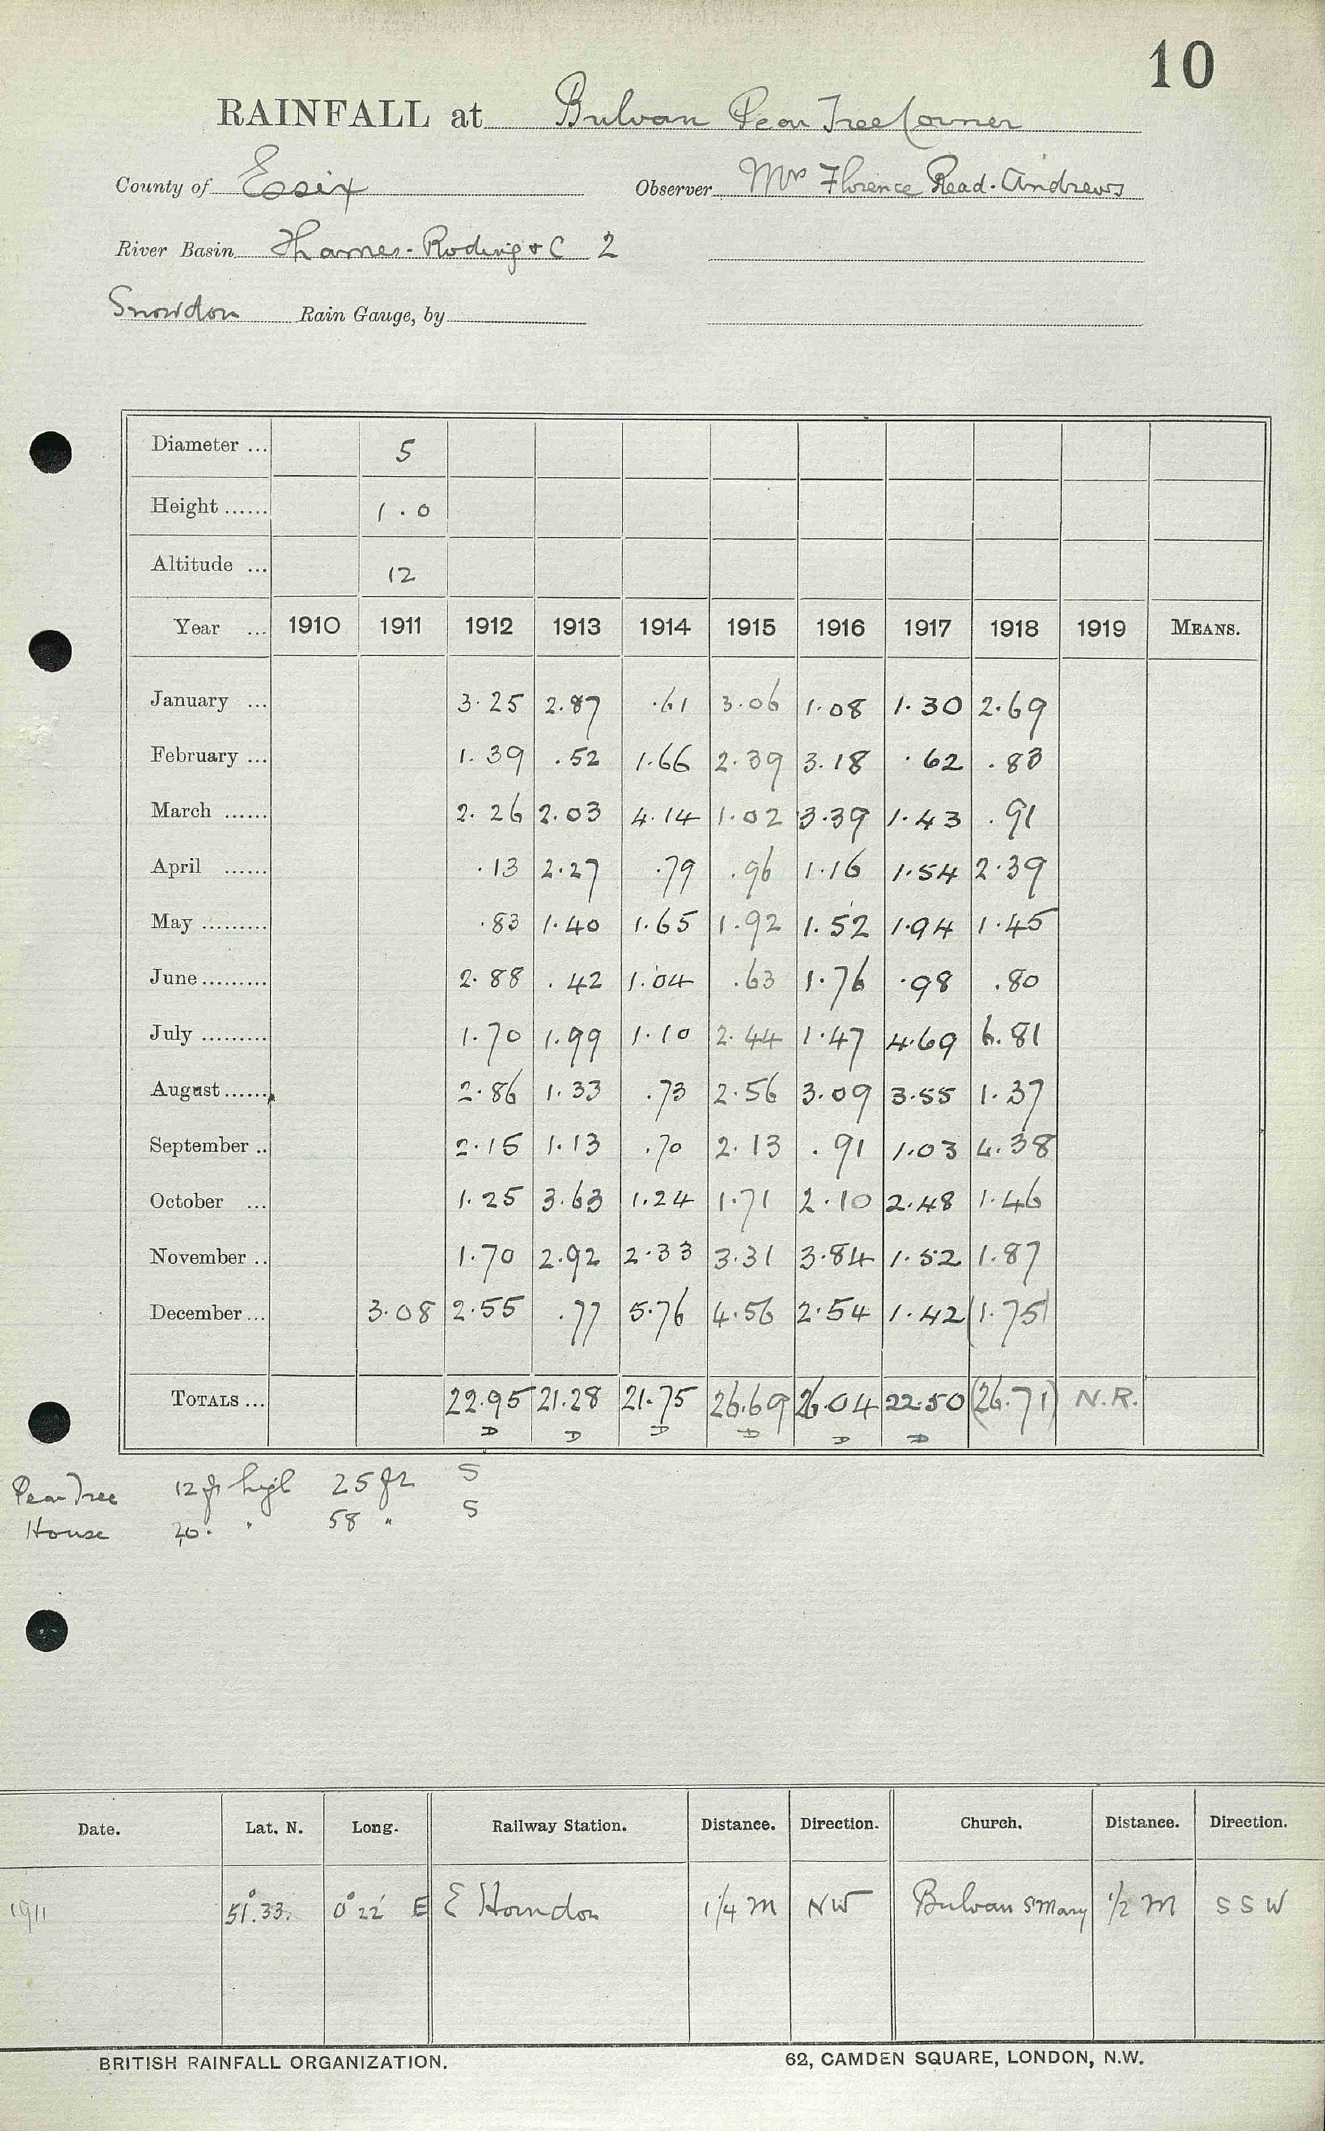 10
RAINFALL at Bulvan Pear Tree Corner
County of Essex Observer Mrs Florence Read-Andrews
River Basin Thames-Roding & C 2
Snowdon Rain Gauge, by
Diameter ... 5
Height ...... 1.0
Altitude ... 12
Year ... 1910 1911 1912 1913 1914 1915 1916 1917 1918 1919 MEANS.
January ... 3.25 2.87 .61 3.06 1.08 1.30 2.69
February ... 1.39 .52 1.66 2.39 3.18 .62 .83
March ...... 2.26 2.03 4.14 1.02 3.39 1.43 .91
April ...... .13 2.27 .79 .96 1.16 1.54 2.39
May ......... .83 1.40 1.65 1.92 1.52 1.94 1.45
June ......... 2.88 .42 1.04 .63 1.76 .98 .80
July ......... 1.70 1.99 1.10 2.44 1.47 4.69 6.81
August ...... 2.86 1.33 .73 2.56 3.09 3.55 1.37
September .. 2.15 1.13 .70 2.13 .91 1.03 4.38
October ... 1.25 3.63 1.24 1.71 2.10 2.48 1.46
November .. 1.70 2.92 2.33 3.31 3.84 1.52 1.87
December ... 3.08 2.55 .77 5.76 4.56 2.54 1.42 (1.75)
TOTALS ... 22.95 21.28 21.75 26.69 26.04 22.50 (26.71) N.R.
D D D D D D
Pear Tree 12 ft high 25 ft S
House 20 " 58 " S
Date. Lat. N. Long. Railway Station. Distance. Direction. Church. Distance. Direction.
1911 51°.33. 0°22' E E Horndon 1¼ M NW Bulvan St Mary ½ M SSW
BRITISH RAINFALL ORGANIZATION. 62, CAMDEN SQUARE, LONDON, N.W.